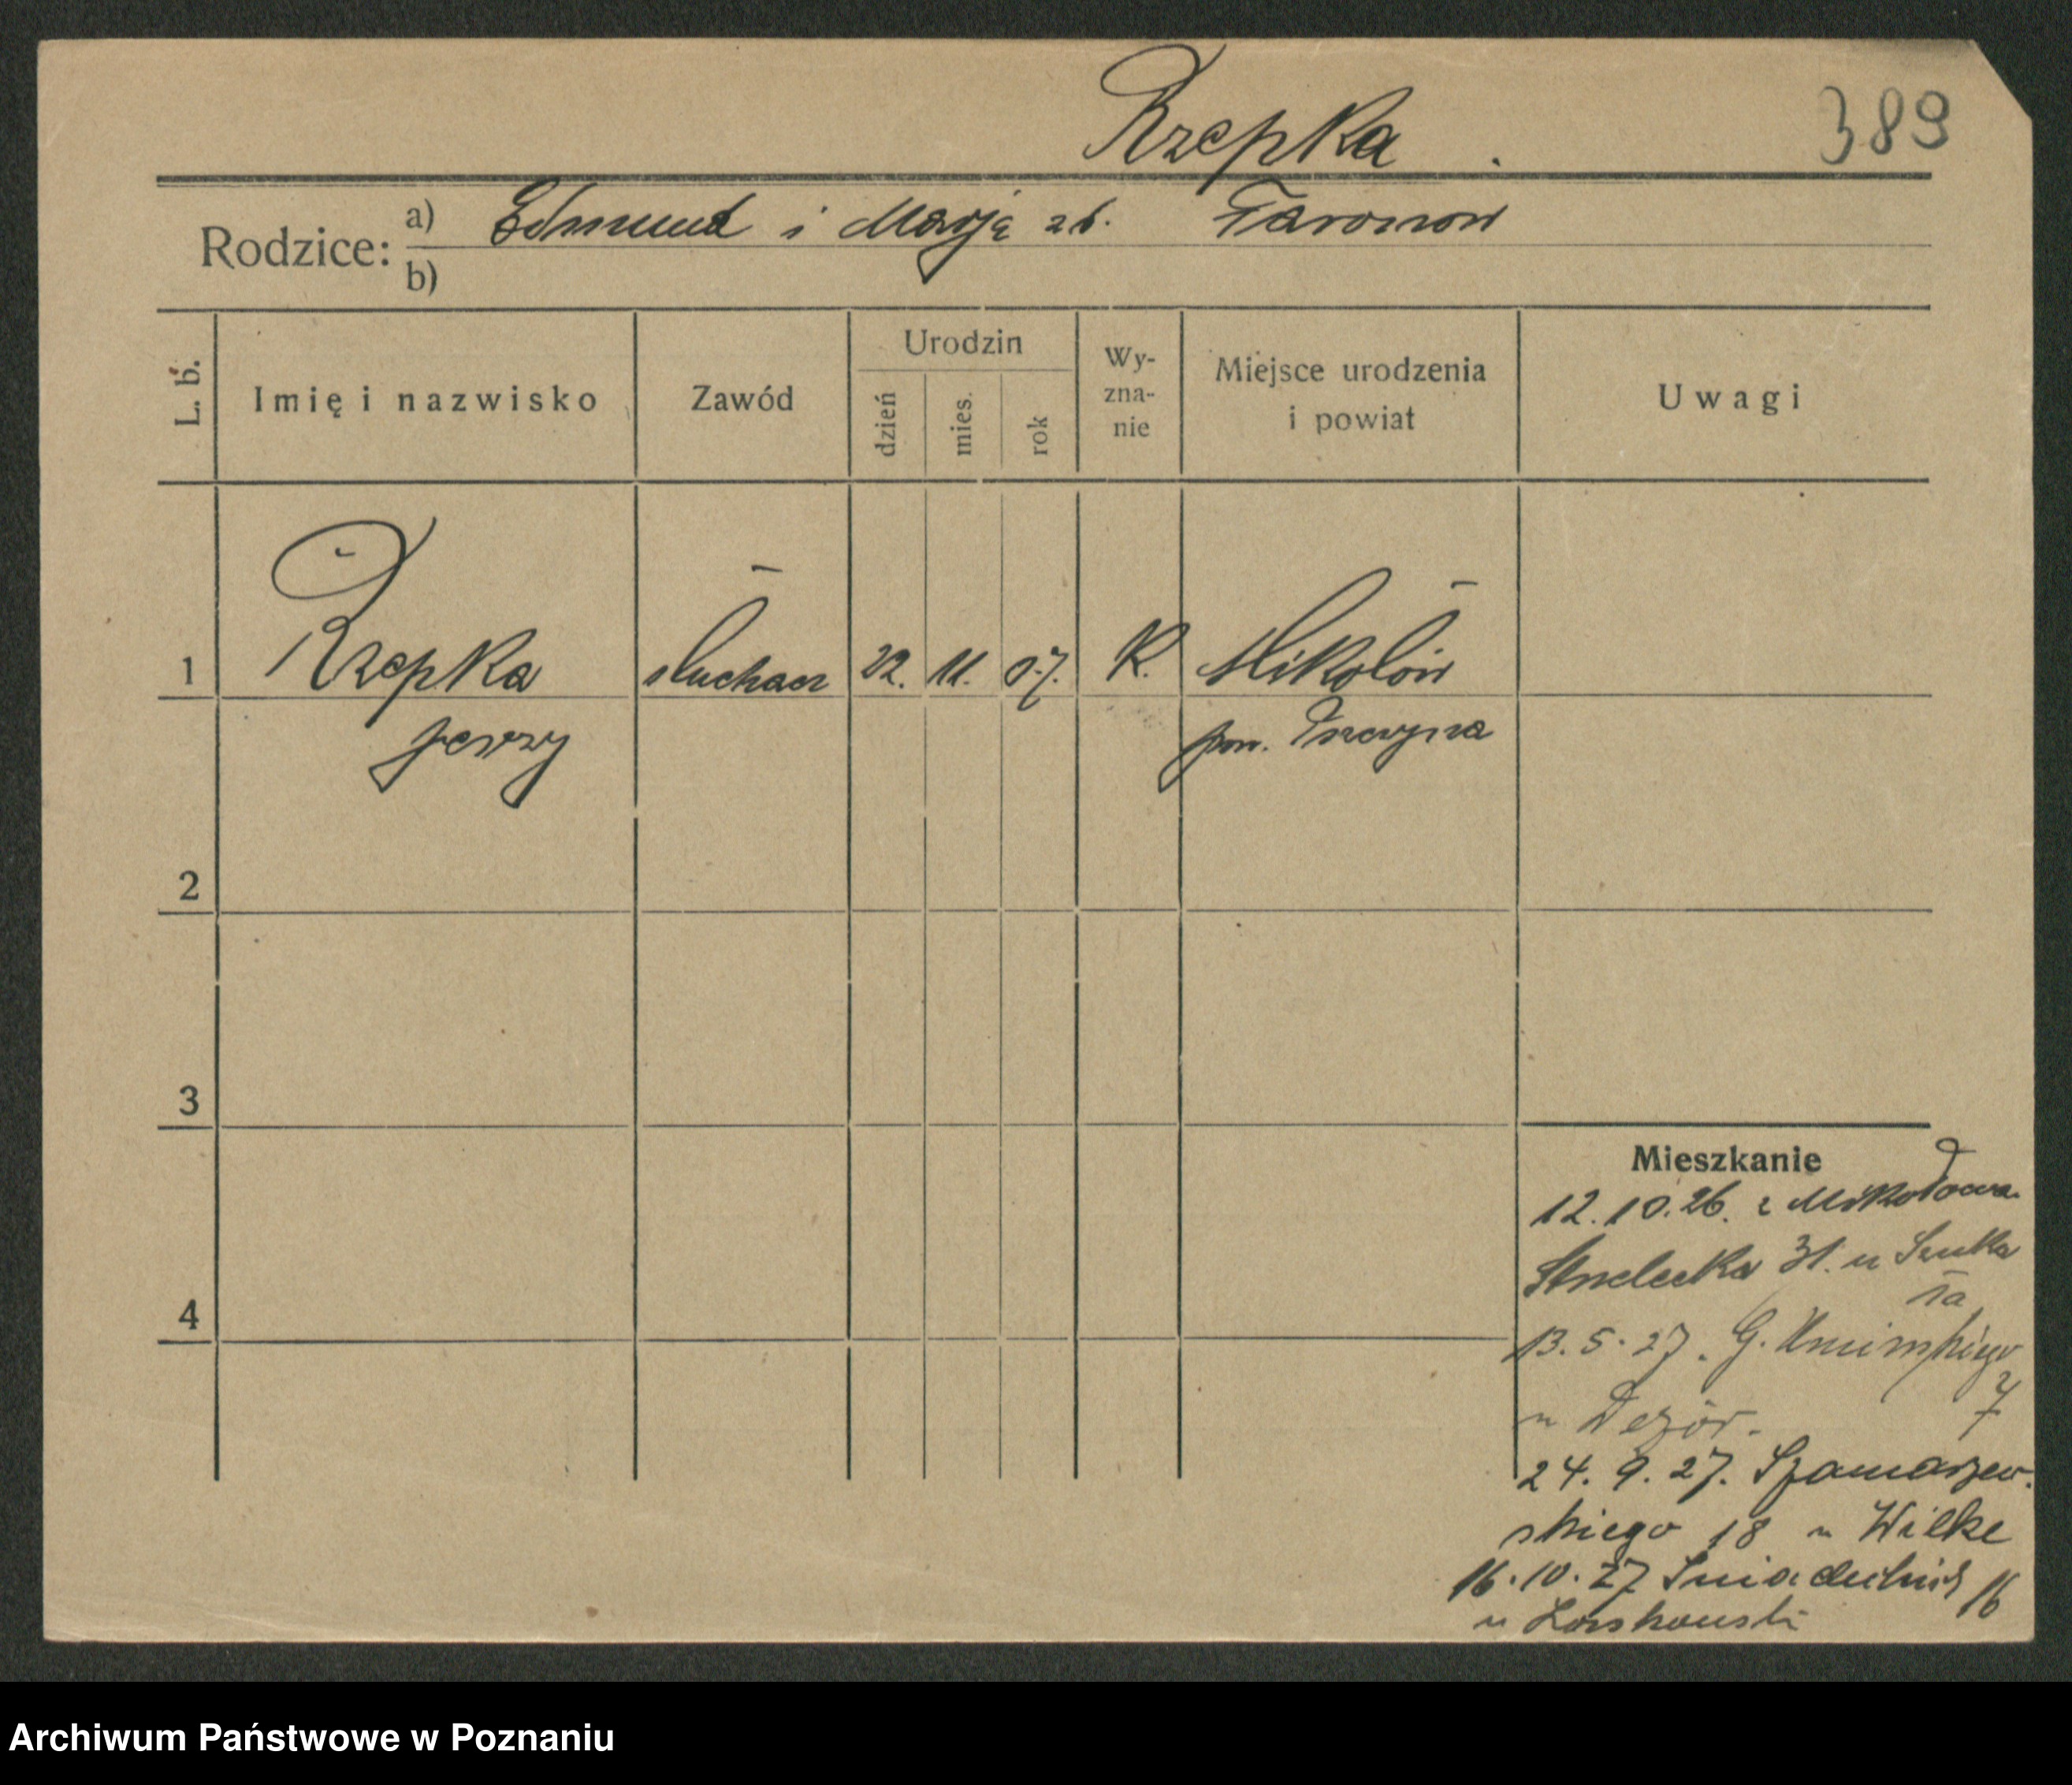 Rzepka
389
Rodzice: a) Edmund i Marja zd.
b)
L. b.
Imię i nazwisko
Zawód
Urodzin
dzień
mies.
rok
Wy-
zna-
nie
Miejsce urodzenia
i powiat
Uwagi
1 Rzepka słuchacz 22. 11. 07. K. Mikołów
Jerzy pow. Pszczyna
2
3
4
Mieszkanie
12. 10. 26. z Mikołowa
Strzelecka 31. u
13. 5. 27. G. Umińskiego
7
u
24. 9. 27. Szamarzew-
skiego 18 u Wilke
16. 10. 27 Śniadeckich 16
u
Archiwum Państwowe w Poznaniu